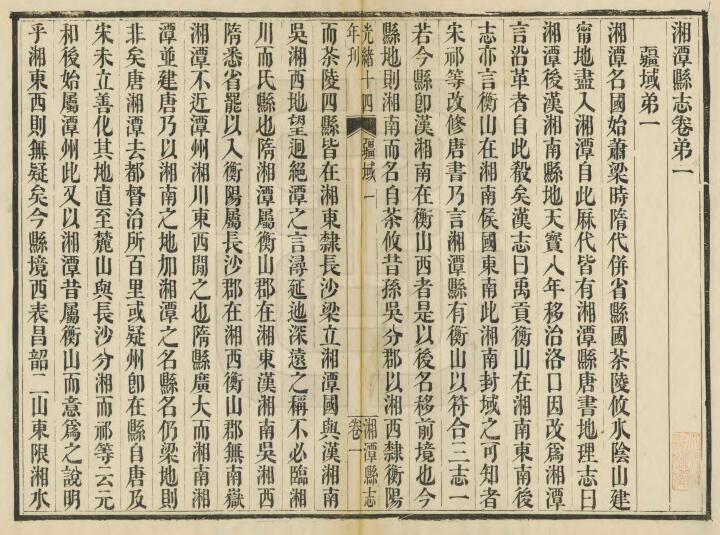 湘潭縣志卷弟一
疆域弟一
湘潭名國始蕭梁時隋代併省縣國茶陵攸水陰山建
甯地盡入湘潭自此厤代皆有湘潭縣唐書地理志曰
湘潭後漢湘南縣地天寳八年移治洛口因改爲湘潭
言沿革者自此殽矣漢志曰禹貢衡山在湘南東南後
志亦言衡山在湘南侯國東南此湘南封域之可知者
宋祁等改修唐書乃言湘潭縣有衡山以符合三志一
若今縣卽漢湘南在衡山西者是以後名移前境也今
縣地則湘南而名自茶攸昔孫吳分郡以湘西隸衡陽
光緒十四年刊
疆域一
湘潭縣志卷一
而茶陵四縣皆在湘東隸長沙梁立湘潭國與漢湘南
吳湘西地望迥絕潭之言潯延迆深遠之稱不必臨湘
川而氏縣也隋湘潭屬衡山郡在湘東漢湘南吳湘西
隋悉省罷以入衡陽屬長沙郡在湘西衡山郡無南嶽
湘潭不近潭州湘川東西閒之也隋縣廣大而湘南湘
潭並建唐乃以湘南之地加湘潭之名縣名仍梁地則
非矣唐湘潭去都督治所百里或疑州卽在縣自唐及
宋未立善化其地直至麓山與長沙分湘而祁等云元
和後始屬潭州此又以湘潭昔屬衡山而意爲之說明
乎湘東西則無疑矣今縣境西表昌韶二山東限湘水